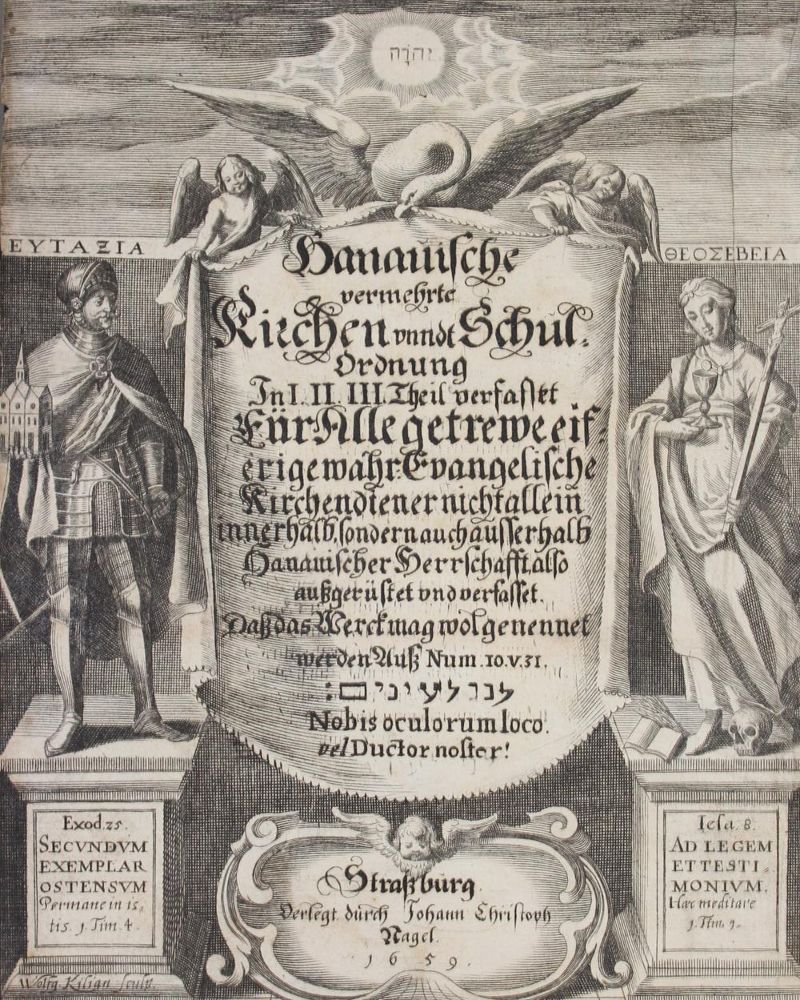 יהוה
ΕΥΤΑΞΙΑ
ΘΕΟΣΕΒΕΙΑ
Hanauische
vermehrte
Kirchen vnndt Schul-
Ordnung
In I. II. III. Theil verfasset
Für Alle getrewe eif-
erige wahr Evangelische
Kirchendiener nicht allein
innerhalb, sondern auch äusserhalb
Hanauischer Herrschafft, also
außgerüstet vnd verfasset.
Daß das Werck mag wol genennet
werden Auß Num. 10. v. 31.
לנו לעינים:
Nobis oculorum loco.
vel Ductor noster!
Exod. 25.
SECVNDVM
EXEMPLAR
OSTENSVM
Permane in is-
tis. 1 Tim. 4.
Iesa. 8.
AD LEGEM
ET TESTI-
MONIVM.
Hæc meditare
1. Tim.
Straßburg.
Verlegt dürch Johann Christoph
Nagel.
1659.
Wolfg. Kilian sculp.